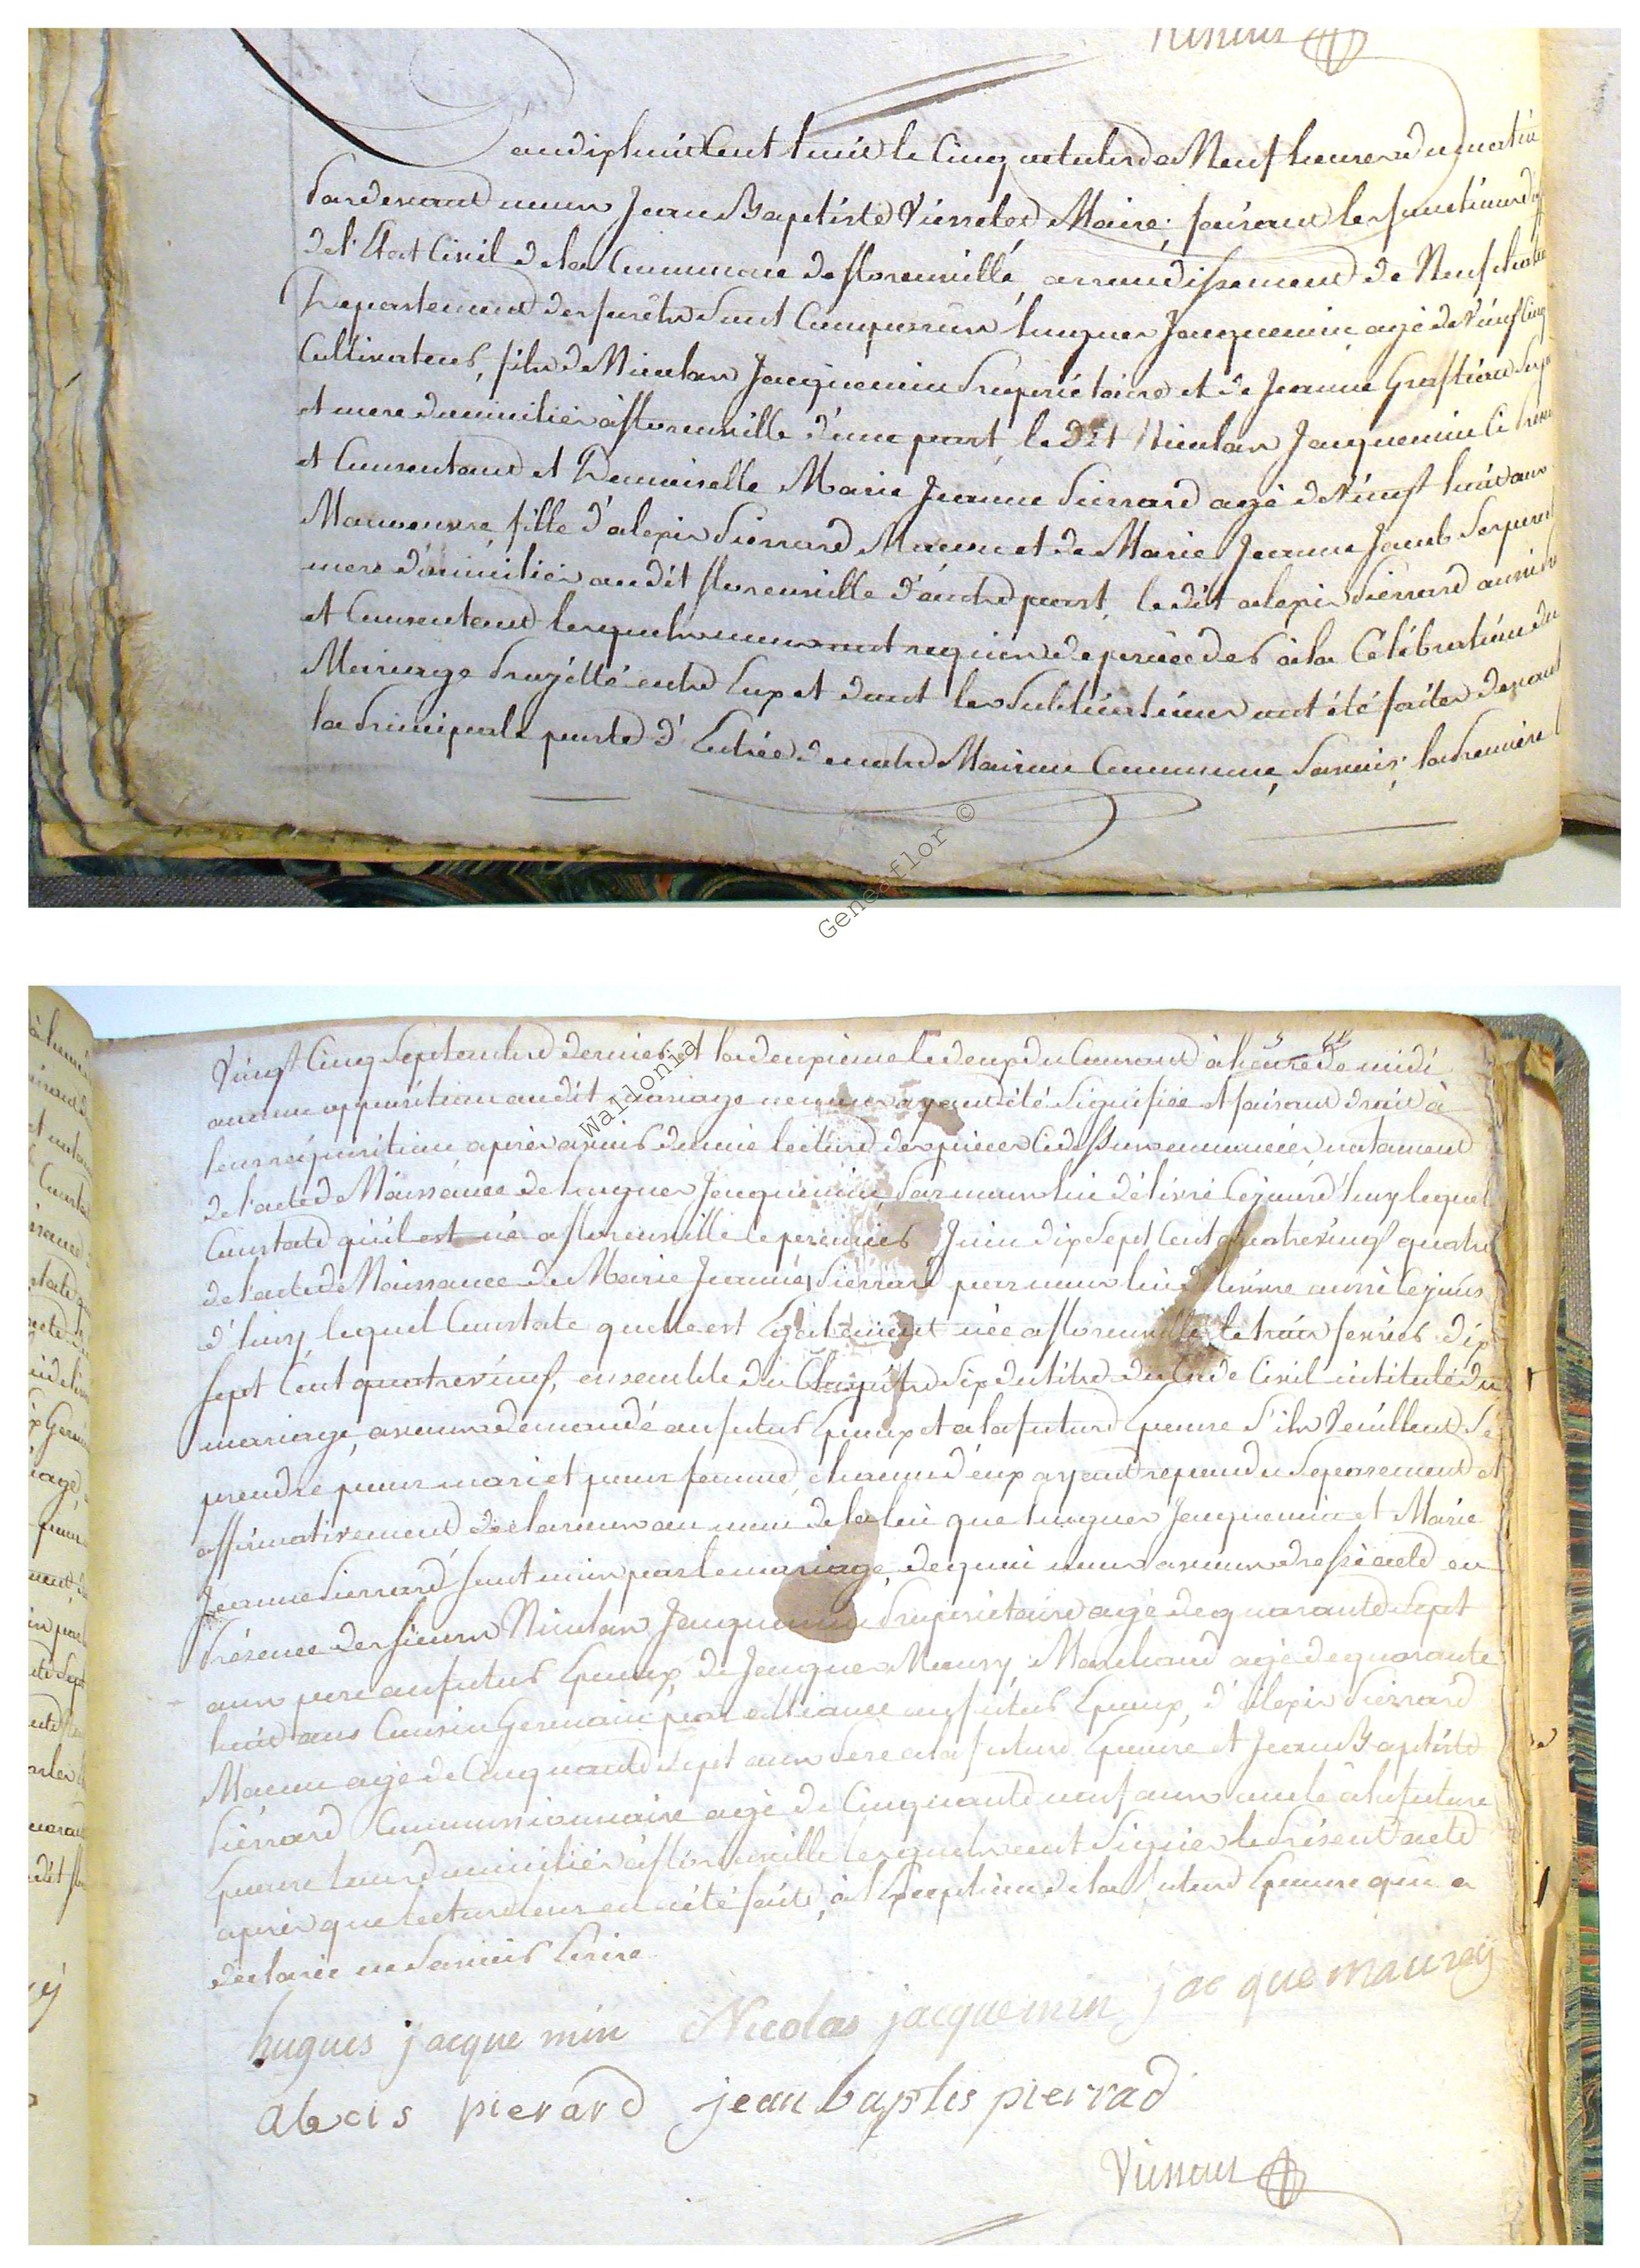 L'an dix huit Cent huit le Cinq octobre a Neuf heures du matin
Pardevant nous Jean Baptiste Maire, faisant les fonctions
de l'Etat Civil de la Commune de florenville, arrondissement de
Departement des forêts sont Comparus hugues Jacquemin agé de vingt Cinq
Cultivateur, fils de Nicolas Jacquemin Propriétaire et de Jeanne ses
et mere domiciliés a florenville d'une part, le dit Nicolas Jacquemin Ci
et Consentant et Demoiselle Marie Jeanne Pierrard agé de vingt huit ans
Manoeuvre, fille d'alexis Pierrard Macon et de Marie Jeanne Jacob Ses pere
mere domiciliés audit florenville d'autre part, le dit alexis Pierrard aussi
et Consentant lesquels nous ont requis de proceder à la Célébration du
Mariage Projetté entre Eux et dont les Publications ont été faites devant
la Principale porte d'Entrée de notre Maison Commune, Savoir; la Premiere
Vingt Cinq Septembre dernier et la deuxieme le deux du Courant à heure de midi
aucune opposition audit mariage ne nous ayant été Signifiée et faisant droit à
leur réquisition après avoir donné lecture des pièces Cidessus enoncées, notament
de l'acte de Naissance de hugues Jacquemin, Par nous lui délivré Cejourd'huy lequel
Constate qu'il est né a florenville le premier Juin dix Sept Cent quatrevingt quatre
de l'acte de Naissance de Marie Jeanne Pierrard par nous lui délivré aussi Cejour
d'huy, lequel Constate quelle est Egalement née a florenville le trois fevrier dix
Sept Cent quatrevingt, ensemble du Chapitre Six du titre du Code Civil intitulé du
mariage, avons demandé au futur Epoux et a la future Epouse S'ils Veuillent Se
prendre pour mari et pour femme, chacun d'eux ayant repondu Separement et
affirmativement declarons au nom de la loi que hugues Jacquemin et Marie
Jeanne Pierrard sont unis par le mariage, de quoi nous avons dressé acte en
Présence des sieurs Nicolas Jacquemin Propriétaire agé de quarante Sept
ans pere au futur Epoux, de Jacques Maury, Marchand agé de quarante
huit ans Cousin Germain par alliance au futur Epoux, d'alexis Pierrard
Macon agé de Cinquante Sept ans Pere a la future Epouse et Jean Baptiste
Pierrard Commissionnaire agé de Cinquante neuf ans oncle à la future
Epouse tous domiciliés a florenville lesquels ont Signés le Présent acte
après que lecture leur en a été faite, à l'Exception de la future Epouse qui a
declarée ne Savoir Ecrire
hugues jacque min Nicolas jacquemin jacque maurey
alexis pierard jean baptis pierrad
Geneaflor ©
Wallonia